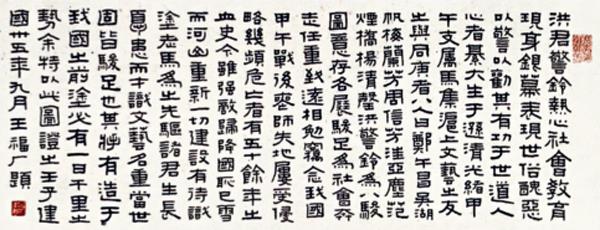 洪君警鈴熱心社會教育
現身銀幕表現世俗醜惡
以警以勸其有功于世道人
心者綦大生于遜清光緒甲
午支屬馬集滬上文藝之友
生與同庚者八人曰鄭午昌吳湖
帆梅蘭芳周信芳汪亞塵范
煙橋楊清磬洪警鈴為八駿
圖意存各展駿足為社會奔
走任重致遠相勉竊念我國
甲午戰後喪師失地屢受侵
略幾頻危亡者有五十餘年之
血史今雖强敵歸降國恥已雪
而河山重新一切建設有待識
塗老馬為之先驅諸君生長
憂患而才識文藝名重當世
固皆駿足也其將有造于
我國之前塗必有一日千里之
勢余特以此圖證之壬子建
國卅五年九月王福厂題